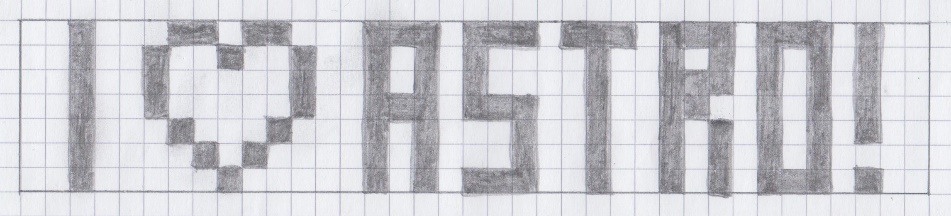 I ♥ ASTRO!